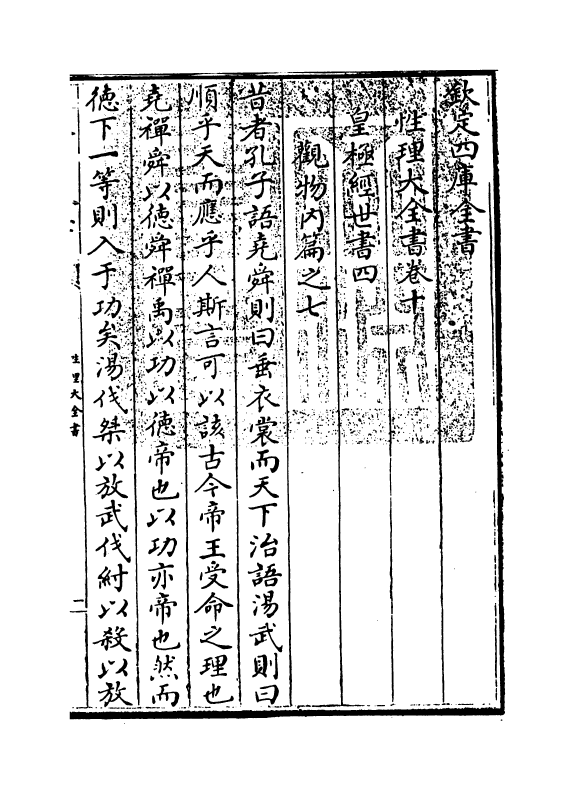 欽定四庫全書
性理大全書卷十
皇極經世書四
觀物內篇之七
昔者孔子語堯舜則曰垂衣裳而天下治語湯武則曰
順乎天而應乎人斯言可以該古今帝王受命之理也
堯禪舜以徳舜禪禹以功以徳帝也以功亦帝也然而
徳下一等則入于功矣湯伐桀以放武伐紂以殺以放
性理大全書